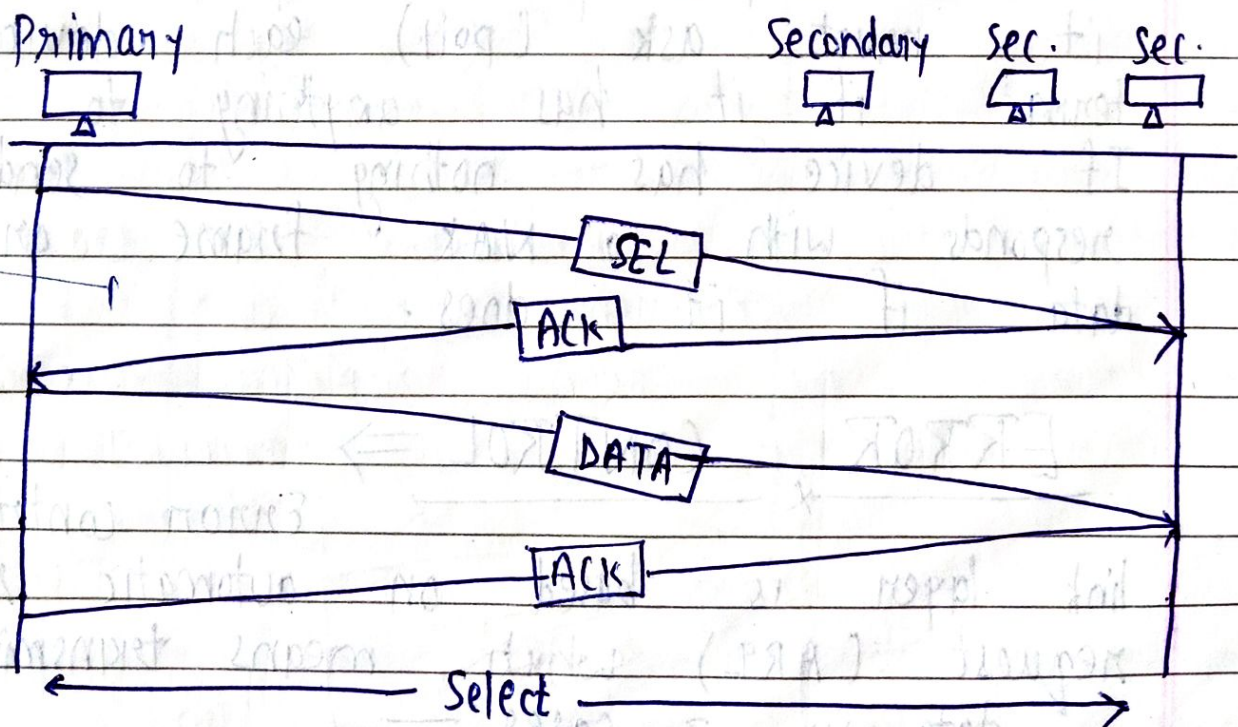 Primary Secondary Sec. Sec.
SEL
ACK
DATA
ACK
Select